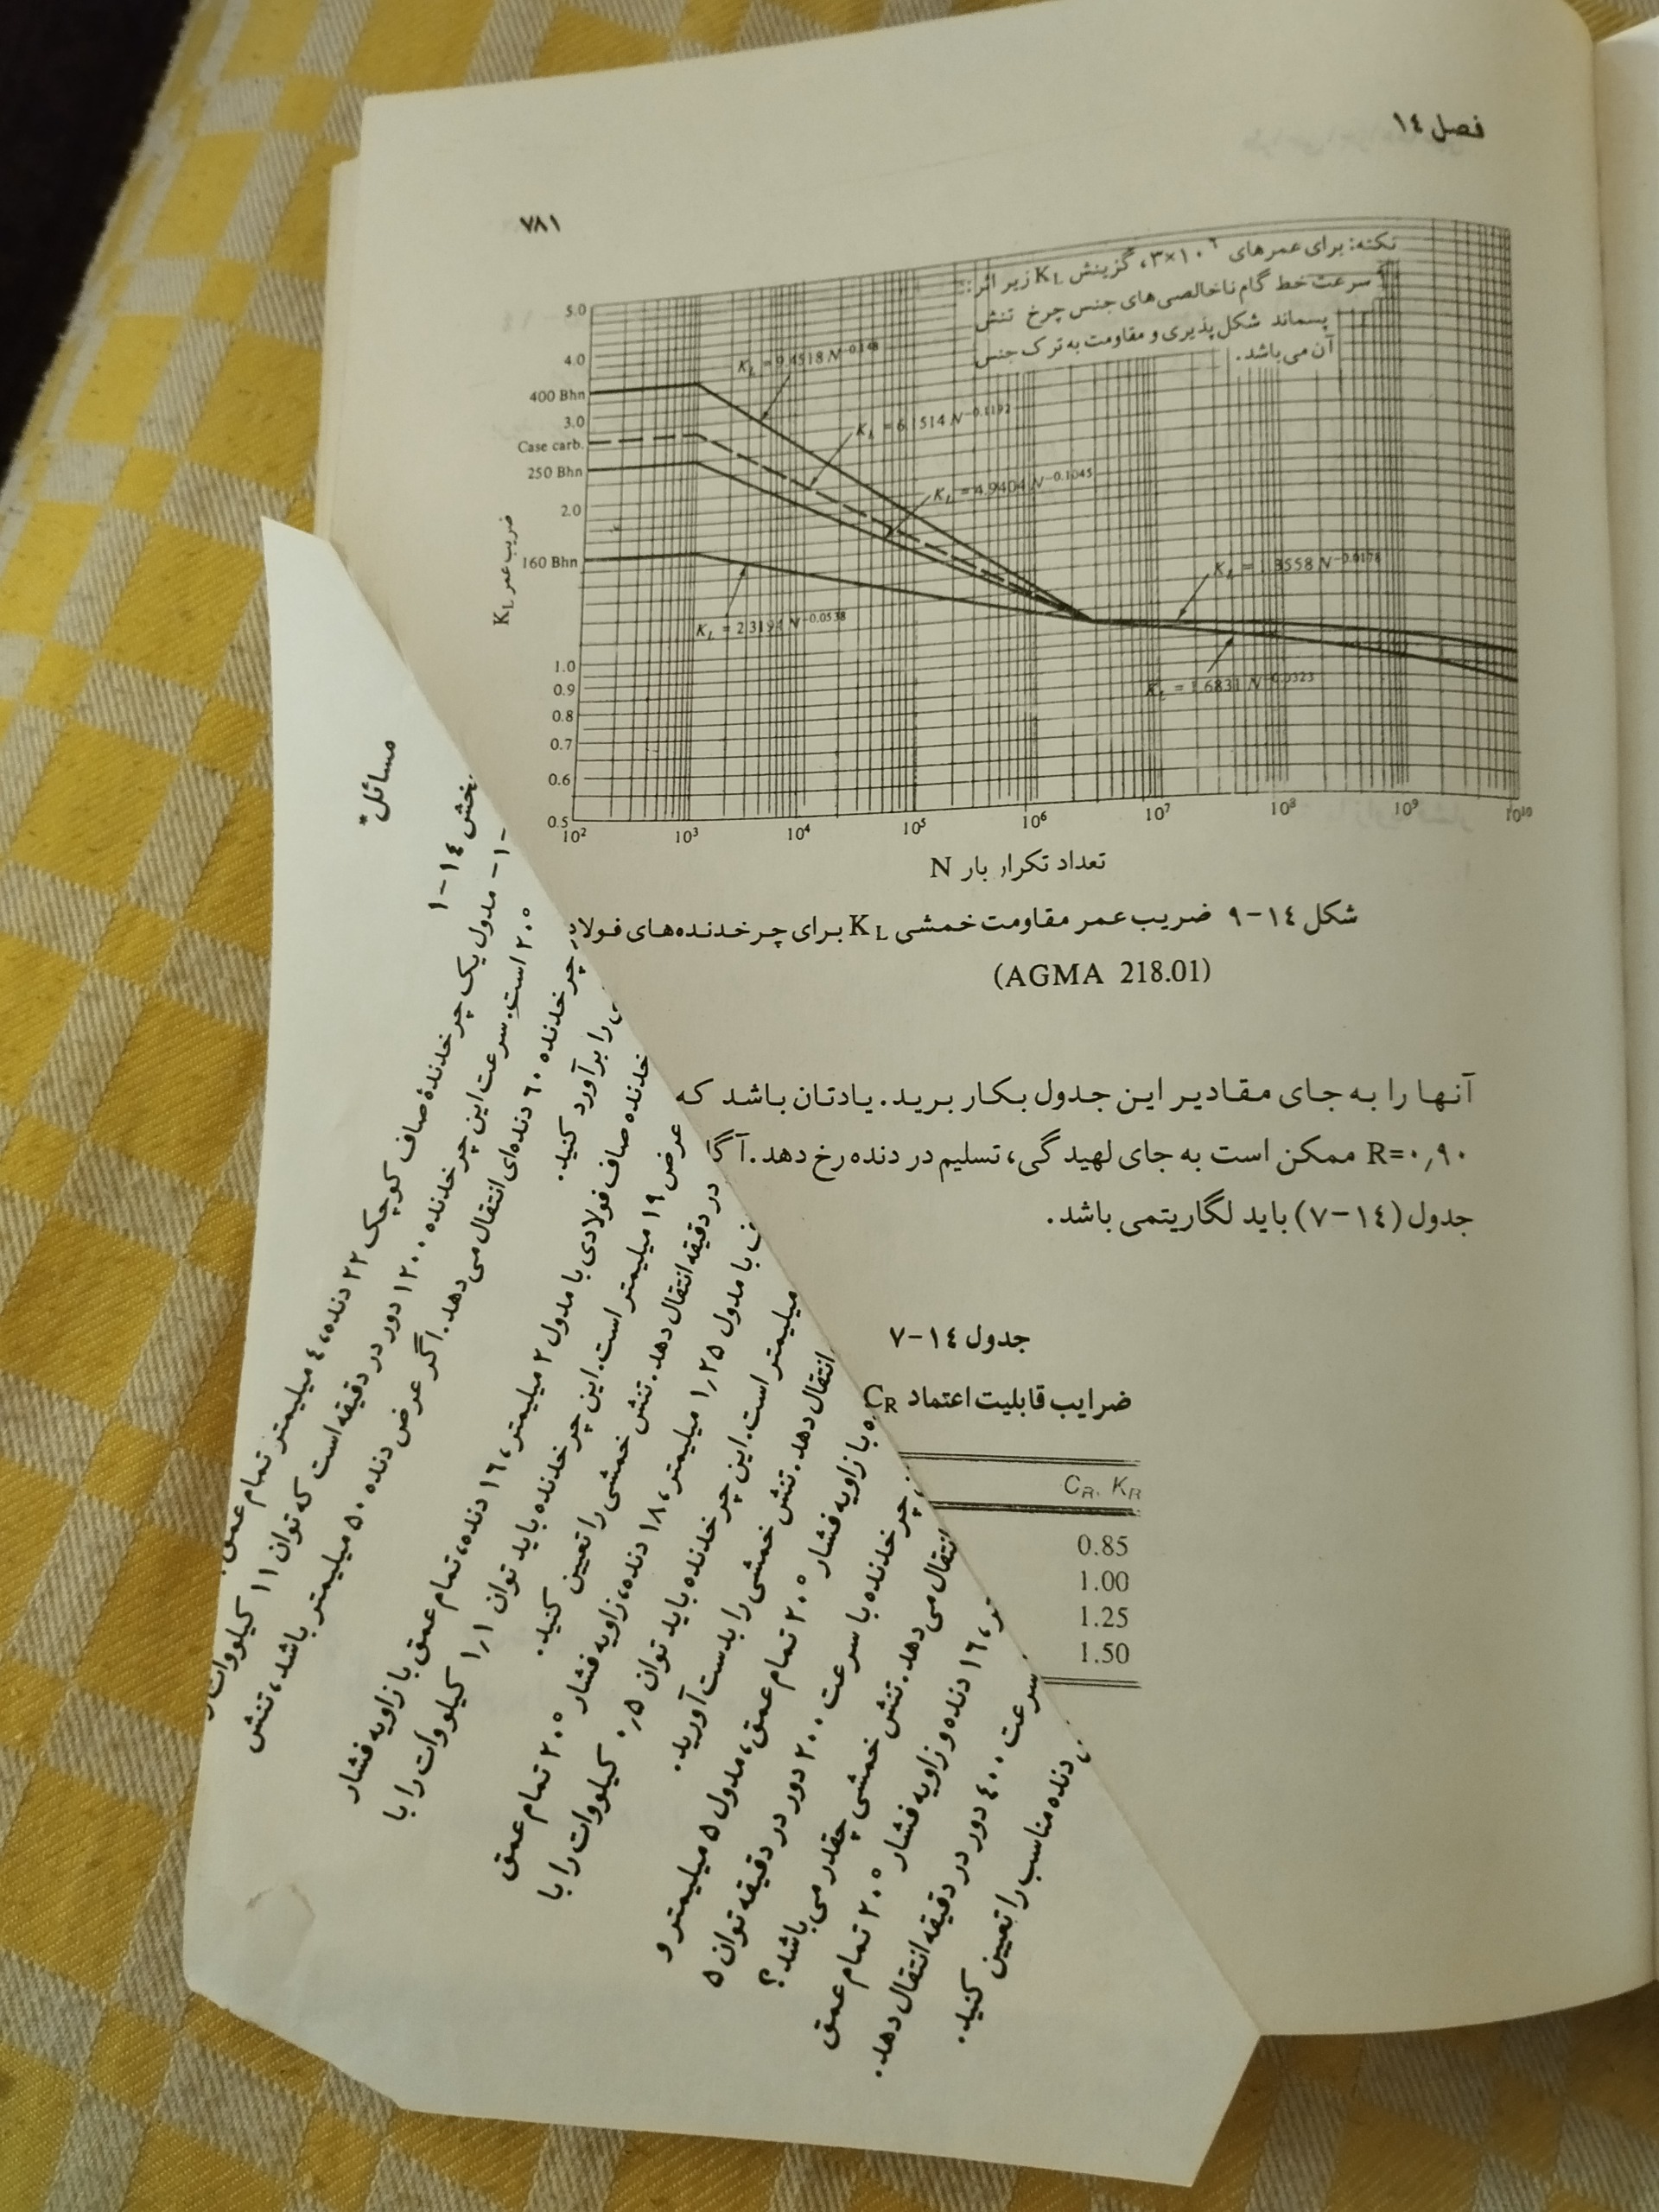 فصل ١٤
٧٨١
نکته: برای عمرهای ٣×١٠٦، گزینش KL زیر اثر:
سرعت خط گام ناخالصی‌های جنس چرخ تنش
پسماند شکل‌پذیری و مقاومت به ترک جنس
آن می‌باشد.
5.0
4.0
400 Bhn
3.0
Case carb.
250 Bhn
2.0
160 Bhn
1.0
0.9
0.8
0.7
0.6
0.5
ضریب عمر KL
KL = 9.4518 N−0.148
KL = 6.1514 N−0.1192
KL = 4.9404 N−0.1045
KL = 2.3194 N−0.0538
KL = 1.3558 N−0.0178
KL = 1.6831 N−0.0323
10² 10³ 10⁴ 10⁵ 10⁶ 10⁷ 10⁸ 10⁹ 10¹⁰
تعداد تکرار بار N
شکل ١٤-٩ ضریب عمر مقاومت خمشی KL برای چرخدنده‌های فولاد
(AGMA 218.01)
آنها را به جای مقادیر این جدول بکار برید. یادتان باشد که
R=٠٫٩٠ ممکن است به جای لهیدگی، تسلیم در دنده رخ دهد.
جدول (١٤-٧) باید لگاریتمی باشد.
جدول ١٤-٧
ضرایب قابلیت اعتماد CR
CR, KR
0.85
1.00
1.25
1.50
مسائل*
بخش ١٤-١
-١- مدول یک چرخدندۀ صاف کوچک ٢٢ دنده، ٤ میلیمتر تمام عمق
٢٠° است. سرعت این چرخدنده ١٢٠٠ دور در دقیقه است که توان ١١ کیلووات
چرخدنده ٦٠ دنده‌ای انتقال می‌دهد. اگر عرض دنده ٥٠ میلیمتر باشد، تنش
را برآورد کنید.
خدنده صاف فولادی با مدول ٢ میلیمتر، ١٦ دنده، تمام عمق با زاویه فشار
عرض ١٩ میلیمتر است. این چرخدنده باید توان ١٫١ کیلووات را با
در دقیقه انتقال دهد. تنش خمشی را تعیین کنید.
با مدول ١٫٢٥ میلیمتر، ١٨ دنده، زاویه فشار ٢٠° تمام عمق
میلیمتر است. این چرخدنده باید توان ٠٫٥ کیلووات را با
انتقال دهد. تنش خمشی را بدست آورید.
با زاویه فشار ٢٠° تمام عمق، مدول ٥ میلیمتر و
چرخدنده با سرعت ٢٠٠ دور در دقیقه توان ٥
انتقال می‌دهد. تنش خمشی چقدر می‌باشد؟
١٦ دنده و زاویه فشار ٢٠° تمام عمق
سرعت ٤٠٠ دور در دقیقه انتقال دهد.
دنده مناسب را تعیین کنید.